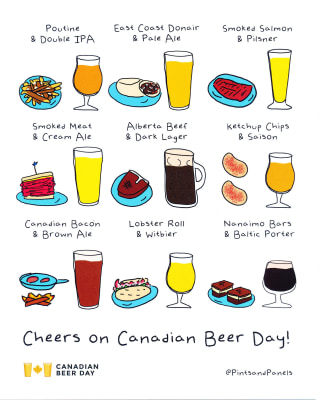 Poutine
& Double IPA
East Coast Donair
& Pale Ale
Smoked Salmon
& Pilsner
Smoked Meat
& Cream Ale
Alberta Beef
& Dark Lager
Ketchup Chips
& Saison
Canadian Bacon
& Brown Ale
Lobster Roll
& Witbier
Nanaimo Bars
& Baltic Porter
Cheers on Canadian Beer Day!
CANADIAN
BEER DAY
@PintsandPanels